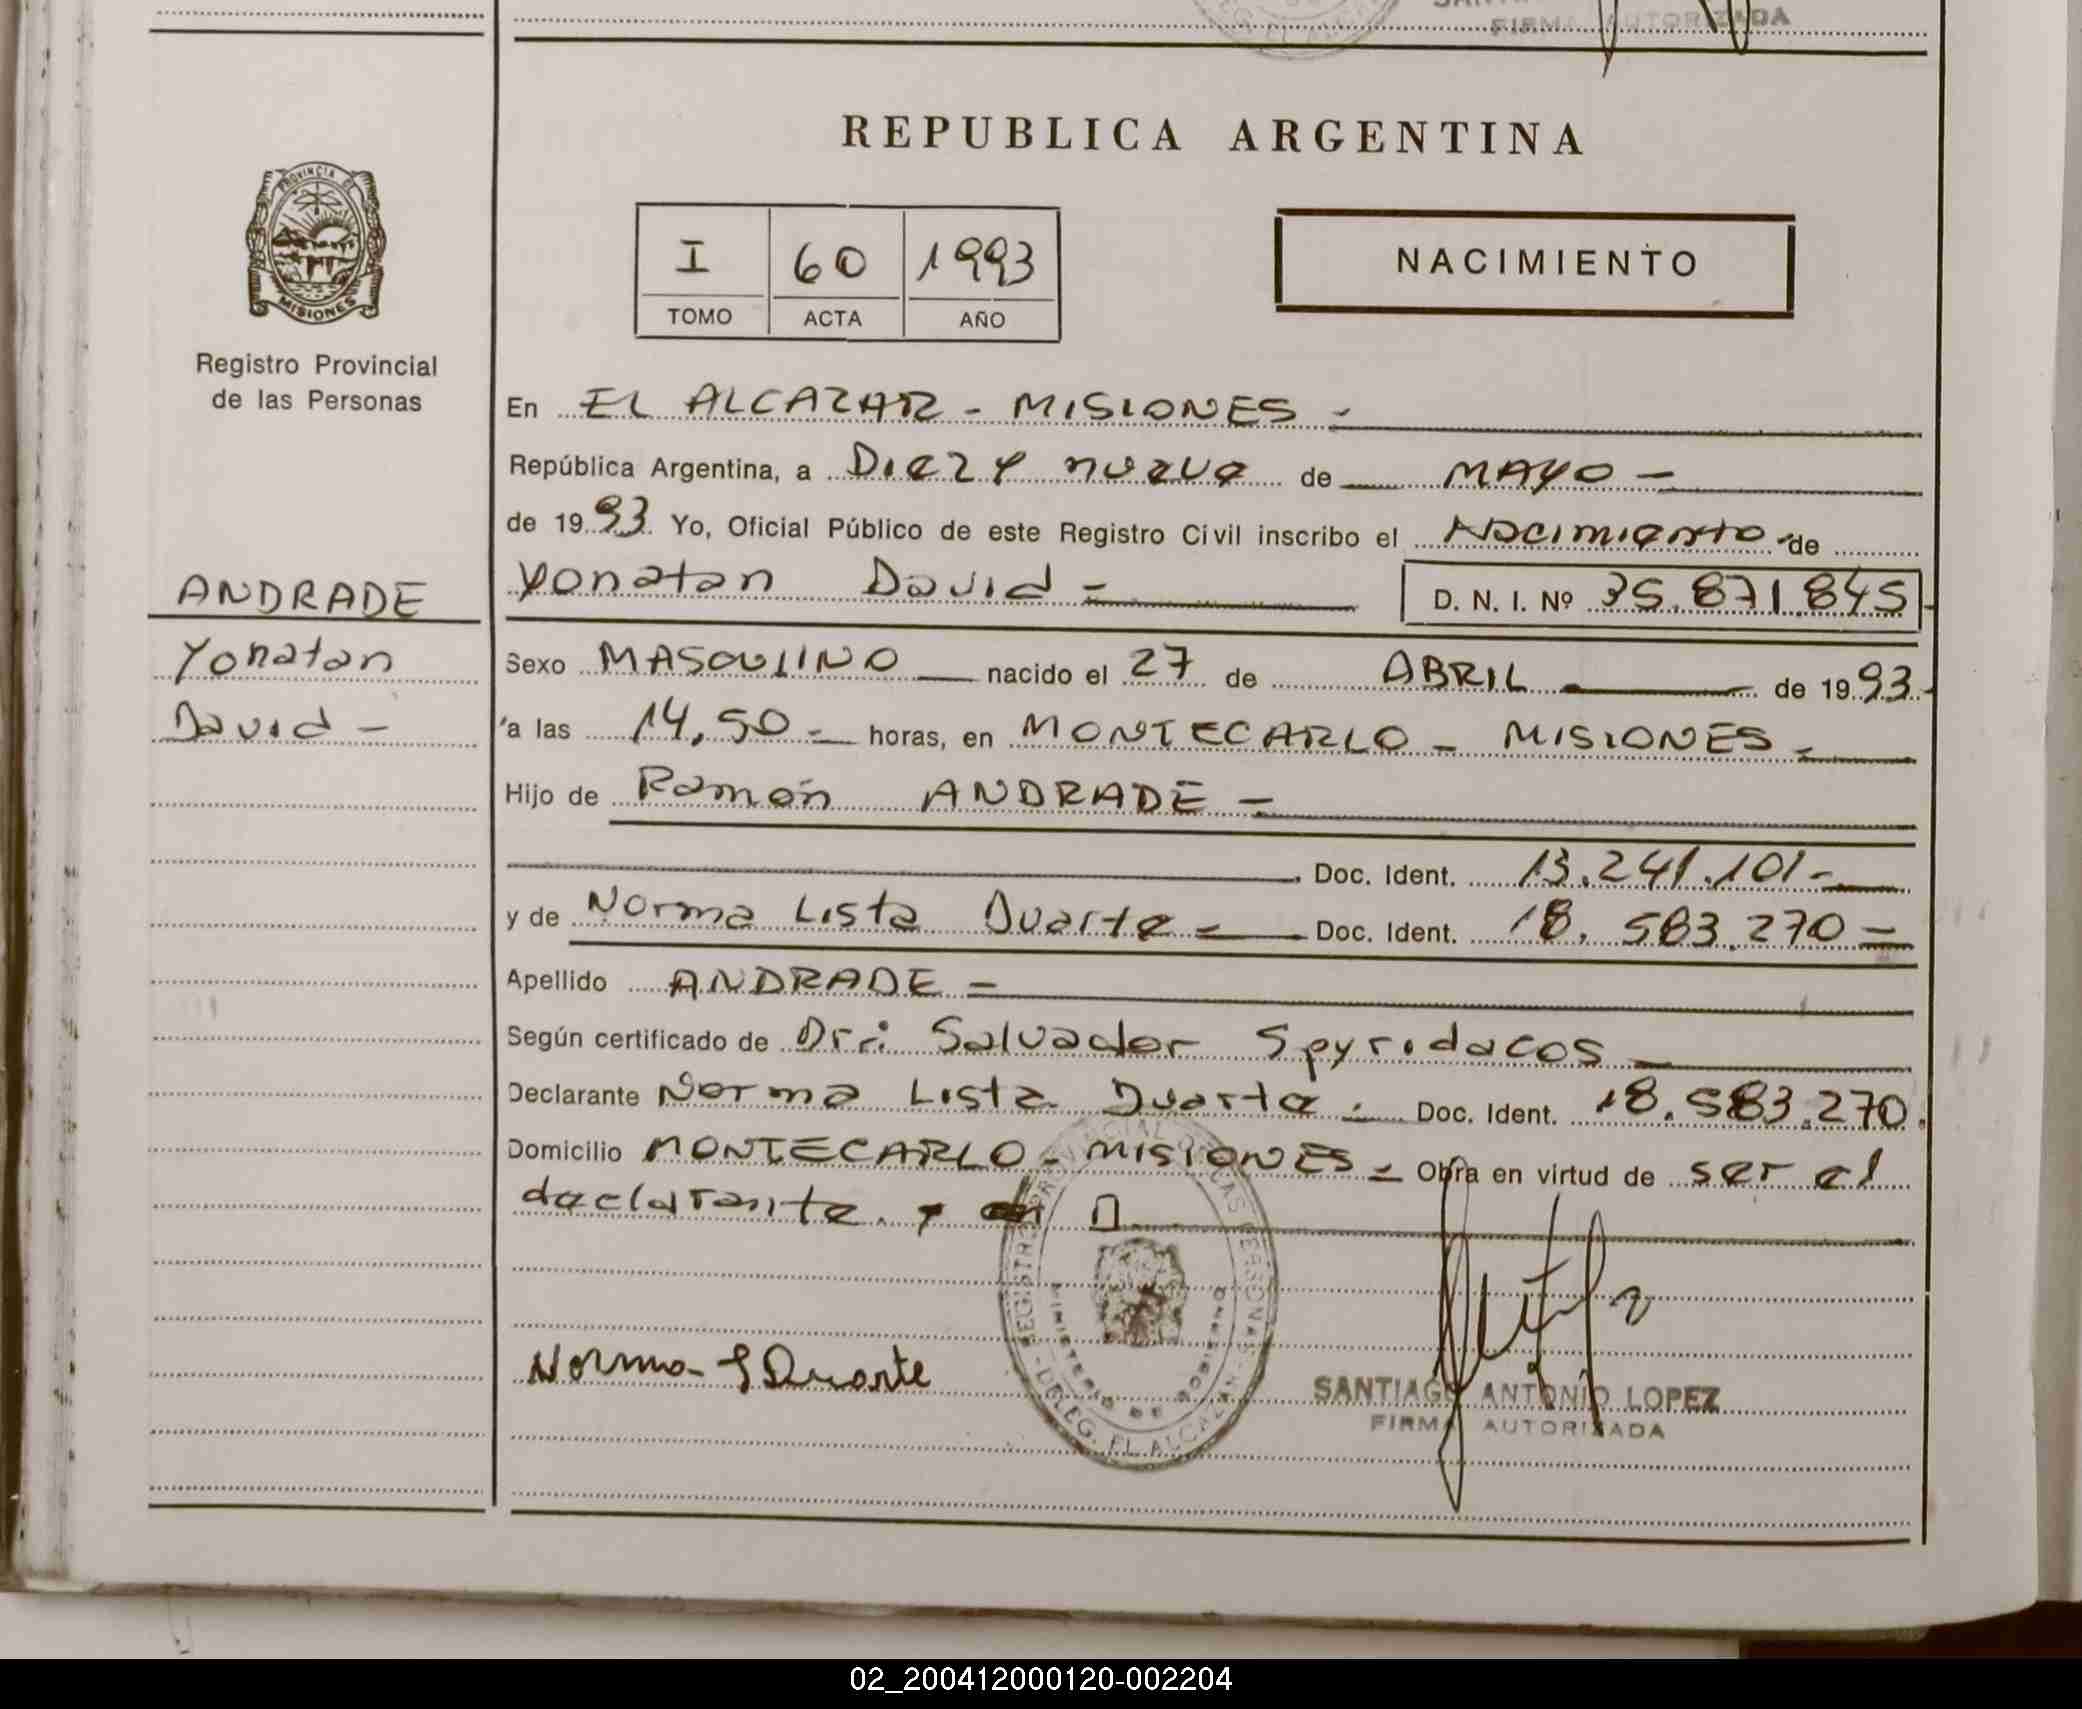 FIRMA AUTORIZADA
REPUBLICA ARGENTINA
PROVINCIA DE
MISIONES
I 60 1993
TOMO ACTA AÑO
NACIMIENTO
Registro Provincial
de las Personas
En EL ALCAZAR - MISIONES -
República Argentina, a Diez y nueve de MAYO -
de 1993 Yo, Oficial Público de este Registro Civil inscribo el Nacimiento de
ANDRADE
Yonatan David = D. N. I. Nº 35.871.845
Yonatan
David -
Sexo MASCULINO nacido el 27 de ABRIL de 1993-
a las 14,50 - horas, en MONTECARLO - MISIONES -
Hijo de Ramón ANDRADE =
Doc. Ident. 13.241.101-
y de Norma Lista Duarte = Doc. Ident. 18.583.270 =
Apellido ANDRADE =
Según certificado de Dr: Salvador Spyridacos
Declarante Norma Lista Duarte - Doc. Ident. 18.583.270.
Domicilio MONTECARLO - MISIONES = Obra en virtud de ser el
declarante.
REGISTRO PROVINCIAL DE LAS PERSONAS
MINISTERIO DE GOBIERNO
DELEG. EL ALCAZAR
Norma L Duarte
SANTIAGO ANTONIO LOPEZ
FIRMA AUTORIZADA
02_200412000120-002204